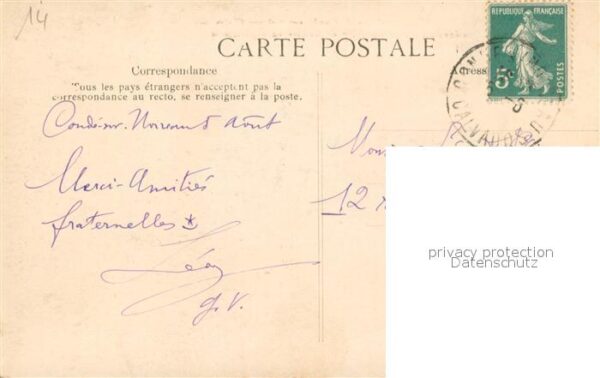 14
CARTE POSTALE
RÉPUBLIQUE FRANÇAISE
5c
POSTES
CALVADOS
Correspondance
Tous les pays étrangers n'acceptent pas la
correspondance au recto, se renseigner à la poste.
Condé-sur-Noireau 5 Août
Merci-Amitiés
fraternelles
Léon
G. V.
12
privacy protection
Datenschutz